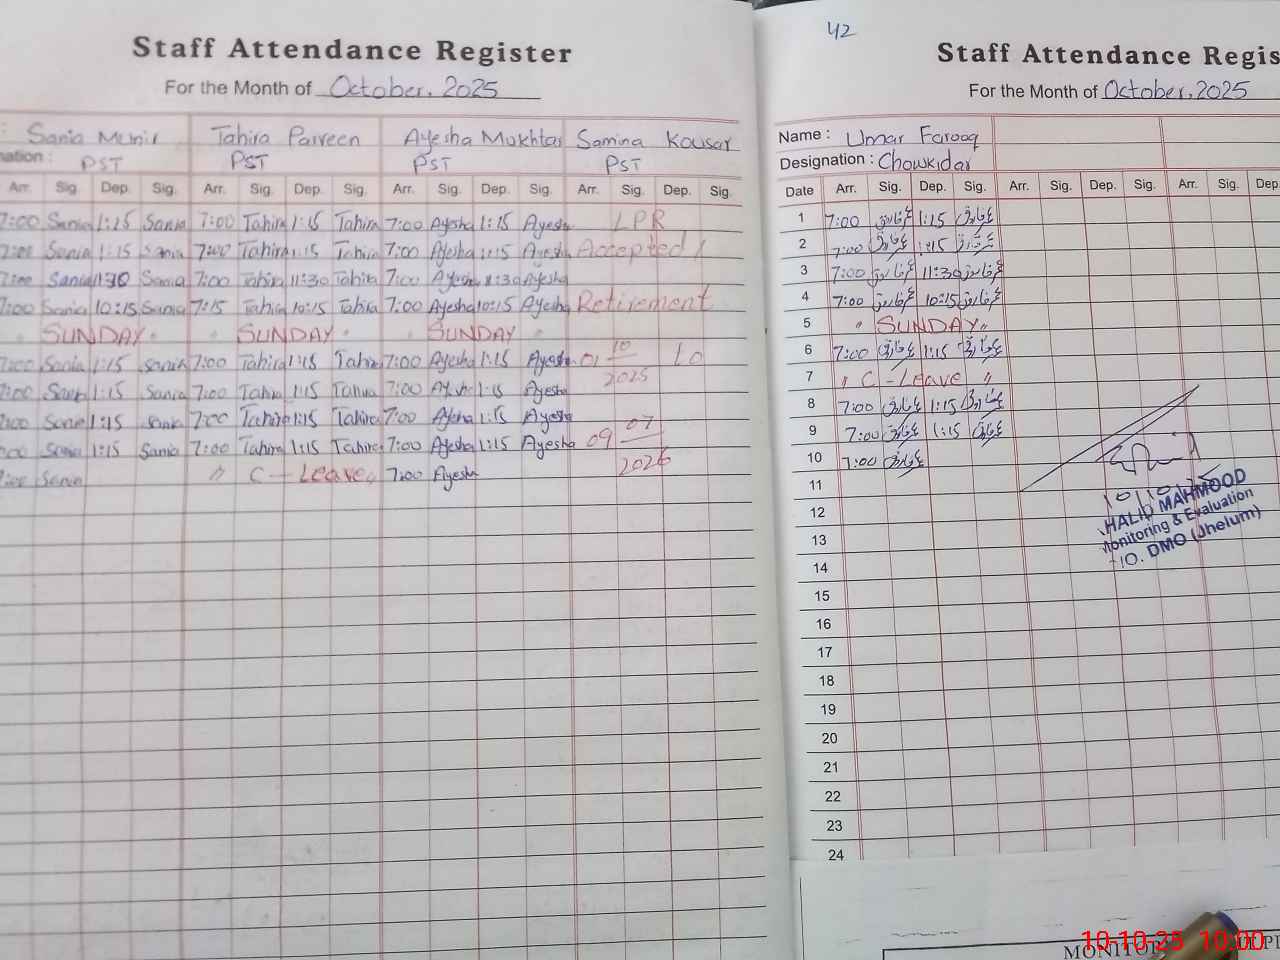 Staff Attendance Register
For the Month of October, 2025
Sania Munir Tahira Parveen Ayesha Mukhtar Samina Kousar
nation : PST PST PST PST
Arr. Sig. Dep. Sig. Arr. Sig. Dep. Sig. Arr. Sig. Dep. Sig. Arr. Sig. Dep. Sig.
7:00 Sania 1:15 Sania 7:00 Tahira 1:15 Tahira 7:00 Ayesha 1:15 Ayesha LPR
7:00 Sania 1:15 Sania 7:00 Tahira 1:15 Tahira 7:00 Ayesha 1:15 Ayesha Accepted
7:00 Sania 11:30 Sania 7:00 Tahira 11:30 Tahira 7:00 Ayesha 11:30 Ayesha
7:00 Sania 10:15 Sania 7:15 Tahira 10:15 Tahira 7:00 Ayesha 10:15 Ayesha Retirement
" SUNDAY " " SUNDAY " " SUNDAY "
7:00 Sania 1:15 Sania 7:00 Tahira 1:15 Tahira 7:00 Ayesha 1:15 Ayesha 01 10 to
2025
7:00 Sania 1:15 Sania 7:00 Tahira 1:15 Tahira 7:00 Ayesha 1:15 Ayesha
7:00 Sania 1:15 Sania 7:00 Tahira 1:15 Tahira 7:00 Ayesha 1:15 Ayesha
:00 Sania 1:15 Sania 7:00 Tahira 1:15 Tahira 7:00 Ayesha 1:15 Ayesha 09 07
2026
7:00 Sania " C-Leave " 7:00 Ayesha
42
Staff Attendance Regis
For the Month of October, 2025
Name : Umar Farooq
Designation : Chowkidar
Date Arr. Sig. Dep. Sig. Arr. Sig. Dep. Sig. Arr. Sig. Dep.
1 7:00 عمرفاروق 1:15 عمرفاروق
2 7:00 عمرفاروق 1:15 عمرفاروق
3 7:00 عمرفاروق 11:30 عمرفاروق
4 7:00 عمرفاروق 10:15 عمرفاروق
5 " SUNDAY "
6 7:00 عمرفاروق 1:15 عمرفاروق
7 " C-Leave "
8 7:00 عمرفاروق 1:15 عمرفاروق
9 7:00 عمرفاروق 1:15 عمرفاروق
10 7:00 عمرفاروق
11
12
13
14
15
16
17
18
19
20
21
22
23
24
10/10/25
HALID MAHMOOD
Monitoring & Evaluation
O. DMO (Jhelum)
MONITO
10-10-25 10:00